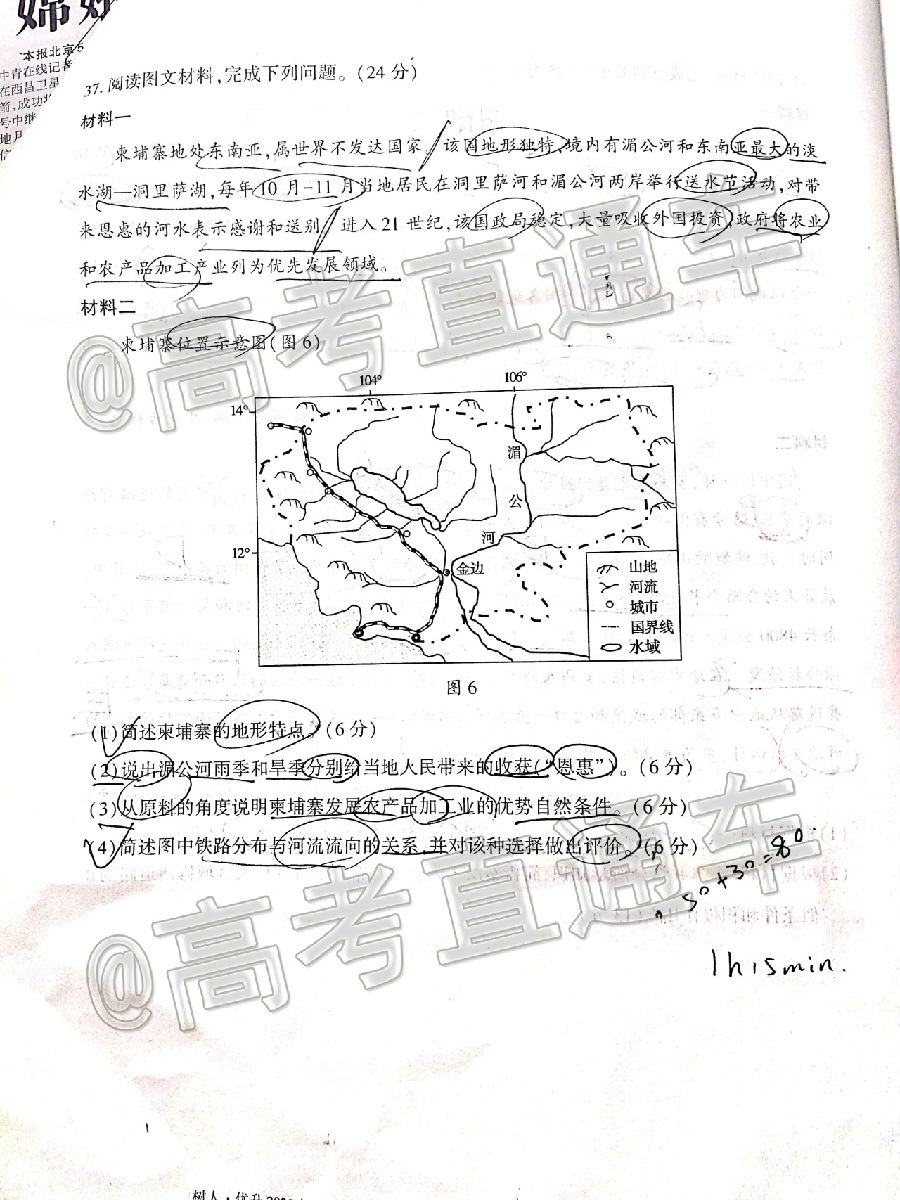 嫦
本报北京5
中青在线记者
在西昌卫星
箭,成功
号中继
地月
信
37. 阅读图文材料,完成下列问题。(24分)
材料一
柬埔寨地处东南亚,属世界不发达国家。该国地形独特,境内有湄公河和东南亚最大的淡
水湖—洞里萨湖,每年10月-11月当地居民在洞里萨河和湄公河两岸举行送水节活动,对带
来恩惠的河水表示感谢和送别。进入21世纪,该国政局稳定,大量吸收外国投资,政府将农业
和农产品加工产业列为优先发展领域。
材料二
柬埔寨位置示意图(图6)
104° 106°
14°
湄
公
河
12°
金边
山地
河流
城市
国界线
水域
图6
(1)简述柬埔寨的地形特点。(6分)
(2)说出湄公河雨季和旱季分别给当地人民带来的收获(“恩惠”)。(6分)
(3)从原料的角度说明柬埔寨发展农产品加工业的优势自然条件。(6分)
(4)简述图中铁路分布与河流流向的关系,并对该种选择做出评价。(6分)
5°+3°=8°
1h15min.
@高考直通车
@高考直通车
树人·优升